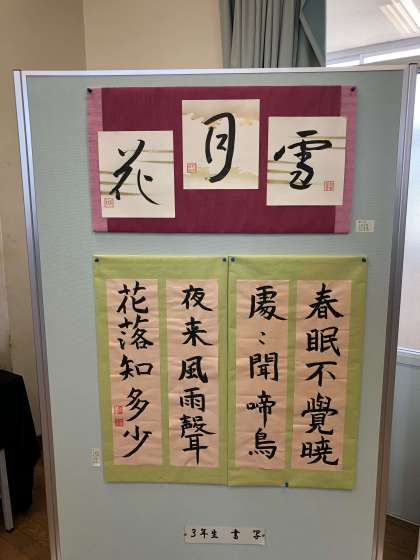 雪
月
花
春眠不覺曉
處〻聞啼鳥
夜来風雨聲
花落知多少
3年生 書写